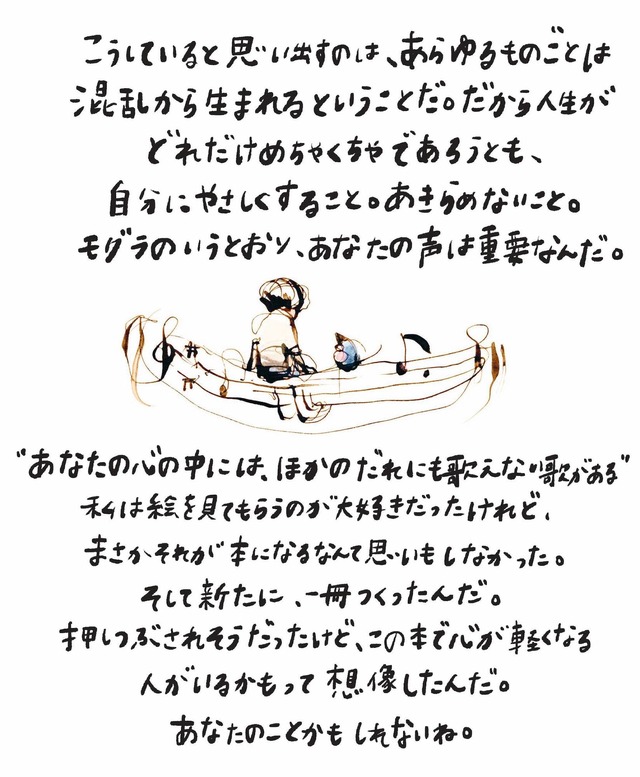 こうしていると思い出すのは、あらゆるものごとは
混乱から生まれるということだ。だから人生が
どれだけめちゃくちゃであろうとも、
自分にやさしくすること。あきらめないこと。
モグラのいうとおり、あなたの声は重要なんだ。
"あなたの心の中には、ほかのだれにも歌えない歌がある"
私は絵を見てもらうのが大好きだったけれど、
まさかそれが本になるなんて思いもしなかった。
そして新たに、一冊つくったんだ。
押しつぶされそうだったけど、この本で心が軽くなる
人がいるかもって想像したんだ。
あなたのことかもしれないね。